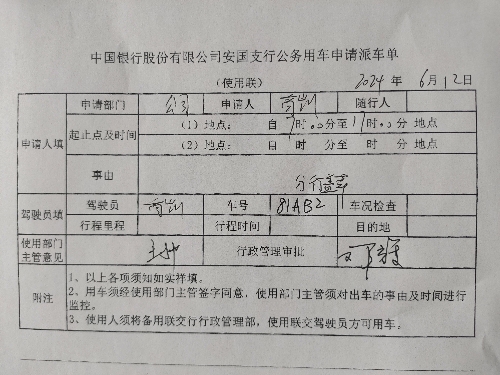 中国银行股份有限公司安国支行公务用车申请派车单
(使用联) 2024 年 6月12日
申请人填 申请部门 公司 申请人 随行人
起止点及时间 (1)地点: 自 9时00分至11时00分 地点
(2)地点: 自 时 分至 时 分 地点
事由 分行盖章
驾驶员填 驾驶员 车号 81AB2 车况检查
行程里程 行程时间 目的地
使用部门主管意见 行政管理审批
附注 1、以上各项须知如实祥填。
2、用车须经使用部门主管签字同意，使用部门主管须对出车的事由及时间进行
监控。
3、使用人须将备用联交行行政管理部，使用联交驾驶员方可用车。